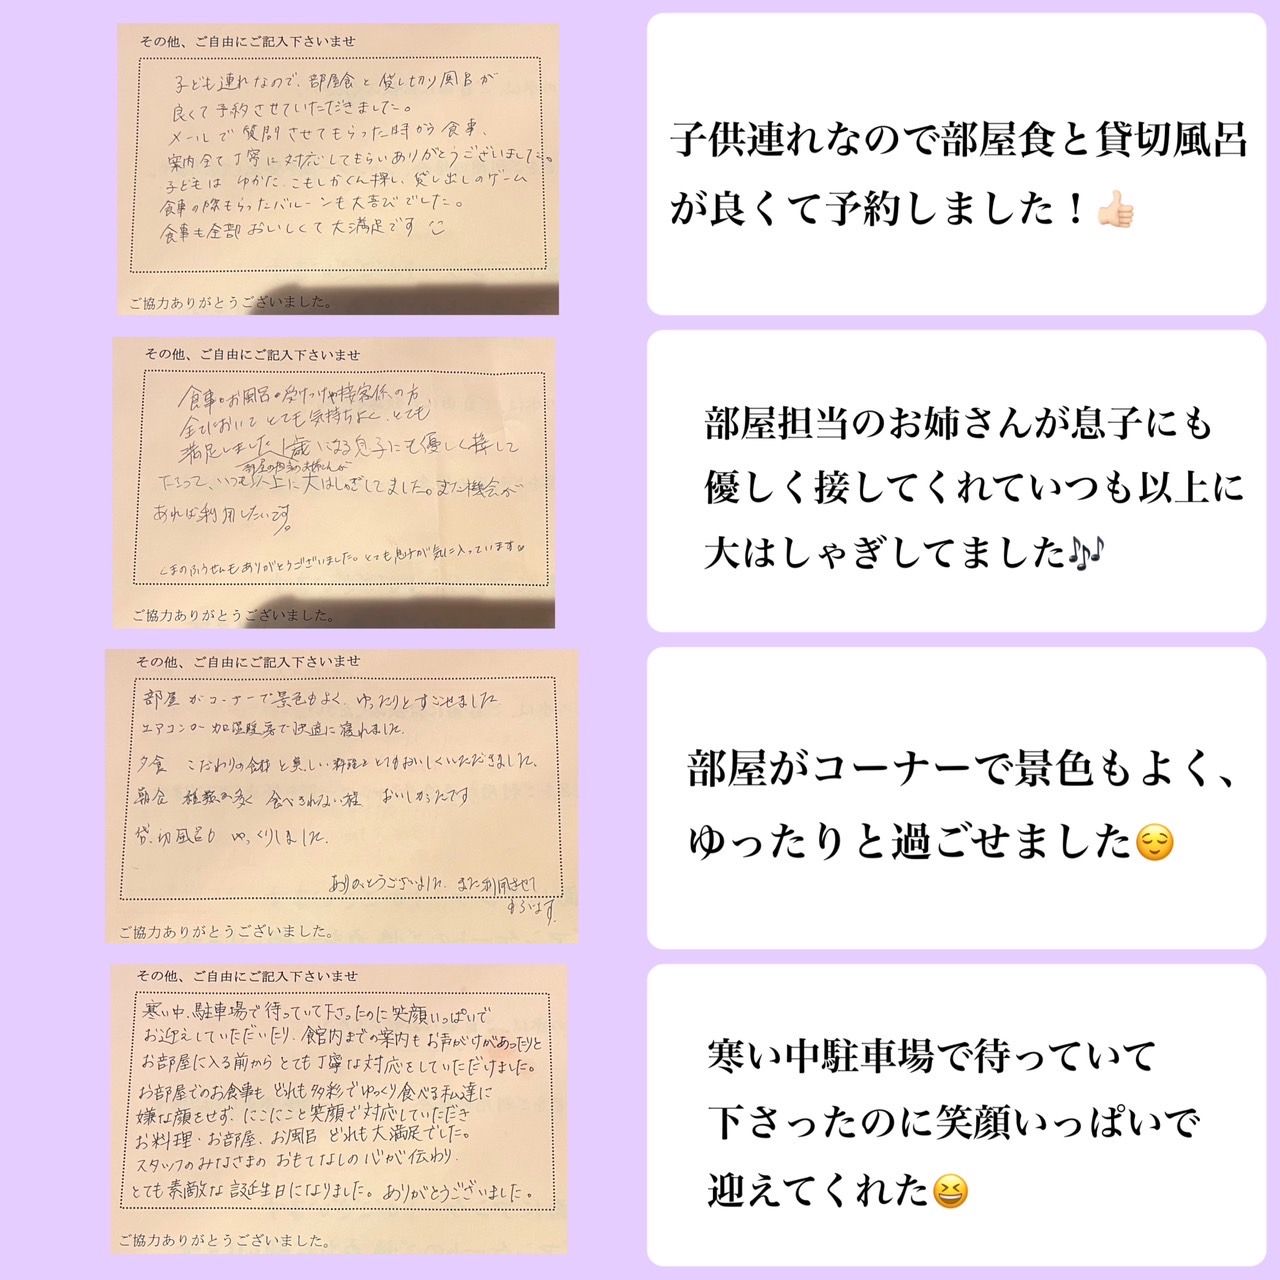 その他、ご自由にご記入下さいませ
子ども連れなので、部屋食と貸し切り風呂が
良くて予約させていただきました。
メールで質問させてもらった時から食事、
案内全て丁寧に対応してもらいありがとうございました。
子どもは ゆかた、こもしかくん探し、貸し出しのゲーム
食事の際もらったバルーンも大喜びでした。
食事も全部おいしくて大満足です
ご協力ありがとうございました。
子供連れなので部屋食と貸切風呂
が良くて予約しました！👍🏻
その他、ご自由にご記入下さいませ
食事・お風呂・受けつけや接客係の方、
全てにおいてとても気持ちよく、とても
満足しました。1歳になる息子にも優しく接して
部屋の担当のお姉さんが
下さって、いつも以上に大はしゃぎしてました。また機会が
あれば利用したいです。
くまのふうせんもありがとうございました。とても息子が気に入っています
ご協力ありがとうございました。
部屋担当のお姉さんが息子にも
優しく接してくれていつも以上に
大はしゃぎしてました🎶
その他、ご自由にご記入下さいませ
部屋がコーナーで景色もよく、ゆったりとすごせました
エアコンの加湿暖房で快適に寝れました。
夕食 こだわりの食材と美しい料理をとてもおいしくいただきました、
朝食 種類が多く 食べきれない程 おいしかったです
貸し切風呂もゆっくりしました。
ありがとうございました。また利用させて
もらいます。
ご協力ありがとうございました。
部屋がコーナーで景色もよく、
ゆったりと過ごせました😌
その他、ご自由にご記入下さいませ
寒い中、駐車場で待っていて下さったのに笑顔いっぱいで
お迎えしていただいたり、館内までの案内もお声がけがあったりと
お部屋に入る前からとても丁寧な対応をしていただけました。
お部屋でのお食事も どれも多彩でゆっくり食べる私達に
嫌な顔をせず、にこにこと笑顔で対応していただき
お料理・お部屋、お風呂 どれも大満足でした。
スタッフのみなさまの おもてなしの心が伝わり、
とても素敵な誕生日になりました。ありがとうございました。
ご協力ありがとうございました。
寒い中駐車場で待っていて
下さったのに笑顔いっぱいで
迎えてくれた😆